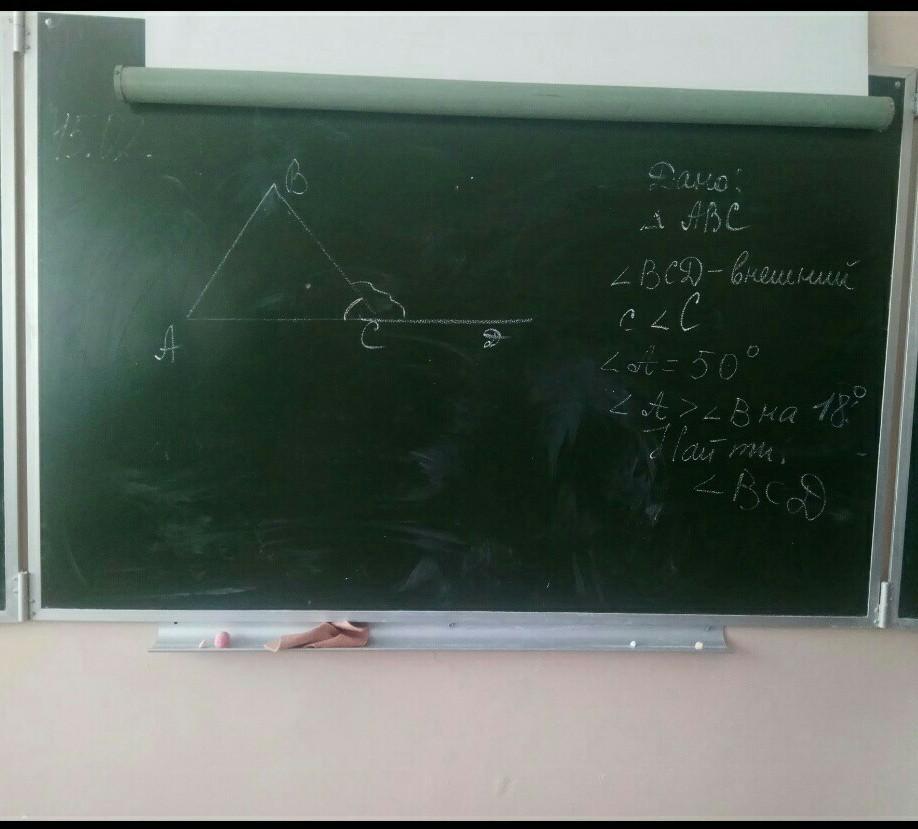 B
A
C
D
Дано:
△ ABC
∠BCD - внешний
с ∠C
∠A = 50°
∠A > ∠B на 18°.
Найти:
∠BCD